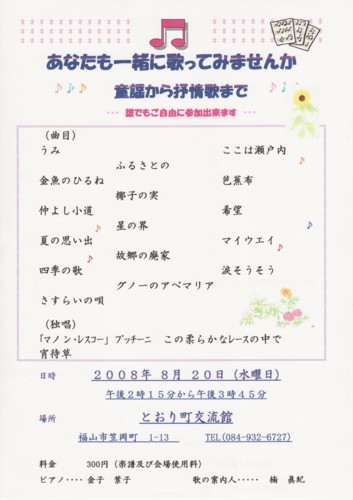 あなたも一緒に歌ってみませんか
童謡から抒情歌まで
… 誰でもご自由に参加出来ます …
（曲目）
うみ　ここは瀬戸内
ふるさとの
金魚のひるね　芭蕉布
椰子の実
仲よし小道　希望
星の界
夏の思い出　マイウエイ
故郷の廃家
四季の歌　涙そうそう
グノーのアベマリア
さすらいの唄
（独唱）
「マノン・レスコー」 プッチーニ　この柔らかなレースの中で
宵待草
日時　２００８年 ８月 ２０日（水曜日）
午後２時１５分から午後３時４５分
場所　とおり町交流館
福山市笠岡町　1-13　TEL(084-932-6727)
料金　300円（楽譜及び会場使用料）
ピアノ‥‥ 金子　葉子　歌の案内人‥‥‥ 楠　眞紀